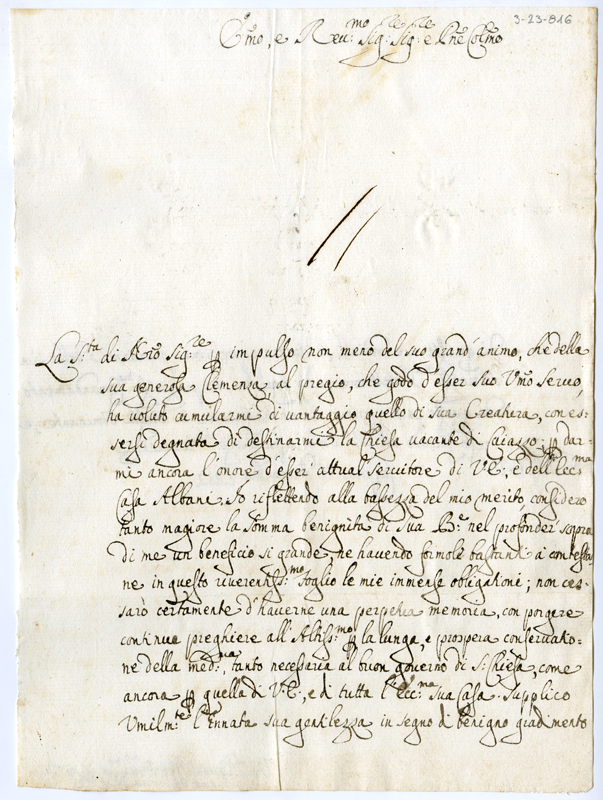 3-23-816
Em̃o, e Reu:mo Sig:re Sig:re e Pñe Colm̃o
La S:ta di Nr̃o Sig:re p impulso non meno del suo grand' animo, che della
sua generosa Clemenza, al pregio, che godo d'esser suo Vm̃o seruo,
ha voluto cumularmi di vantaggio quello di sua Creatura, con es=
sersi degnata di destinarmi la Chiesa vacante di Caiazzo; p dar=
mi ancora l'onore d'esser' attual Seruitore di V.E., e dell'Ecc:ma
Casa Albani. Io riflettendo alla bassezza del mio merito, considero
tanto magiore la somma benignita di Sua B:ne nel profonder sopra
di me un beneficio si grande, ne havendo formole bastanti à contesta
ne in questo riverentiss:mo foglio le mie immense obligationi; non ces=
sarò certamente d'haverne una perpetua memoria, con porgere
continue preghiere all'Altiss:mo p la lunga, e prospera conservatio=
ne della med:ma, tanto necessaria al buon governo di S. Chiesa, come
ancora p quella di V.E., e di tutta l'Ecc:ma sua Casa. Supplico
Vmilm:te l'Innata sua gentilezza in segno di benigno gradimento